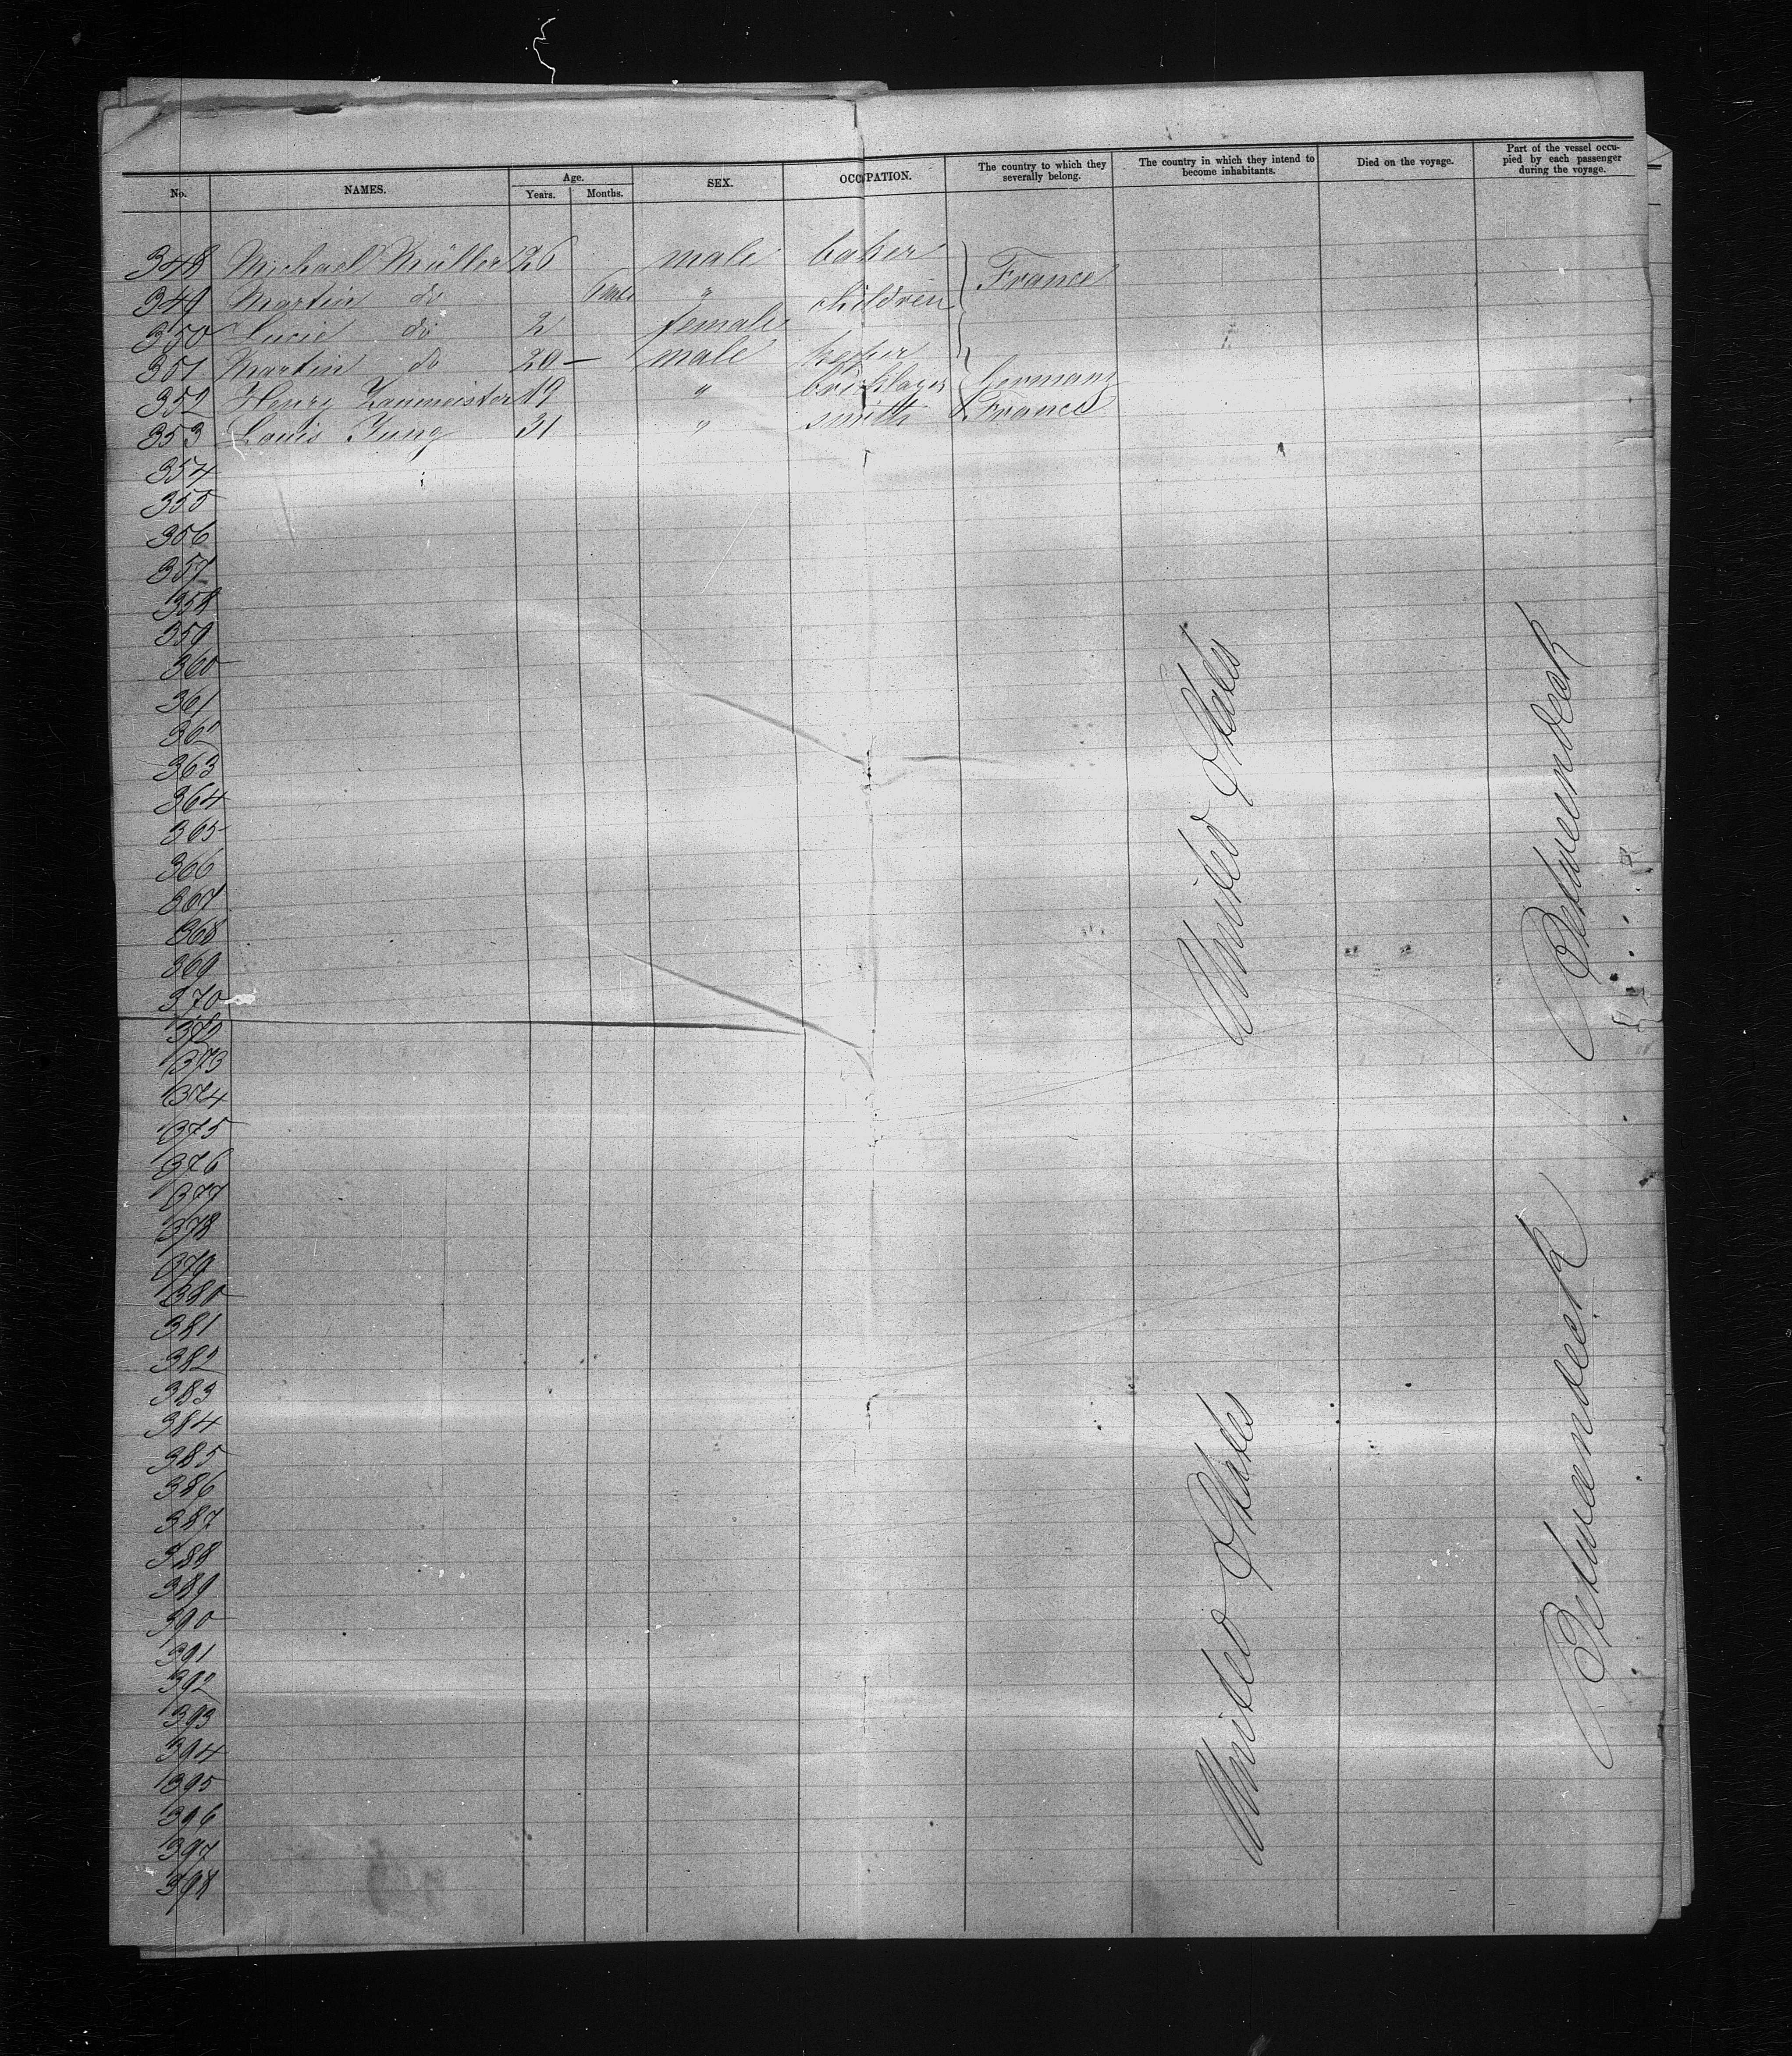 No. NAMES. Age. Years. Months. SEX. OCCUPATION. The country to which they severally belong. The country in which they intend to become inhabitants. Died on the voyage. Part of the vessel occupied by each passenger during the voyage.
348 Michael Müller 26 male baker France
349 Martin do " children
350 Lucie do 2 female
351 Martin do 20 — male
352 Henry 19 " bricklayer Germany
353 Louis Jung 31 " smith France
354
355
356
357
358
359
360
361
362
363
364
365
366
367
368
369
370
372
373
374
375
376
377
378
379
380
381
382
383
384
385
386
387
388
389
390
391
392
393
394
395
396
397
398
United States
Betweendeck
United States
Betweendeck